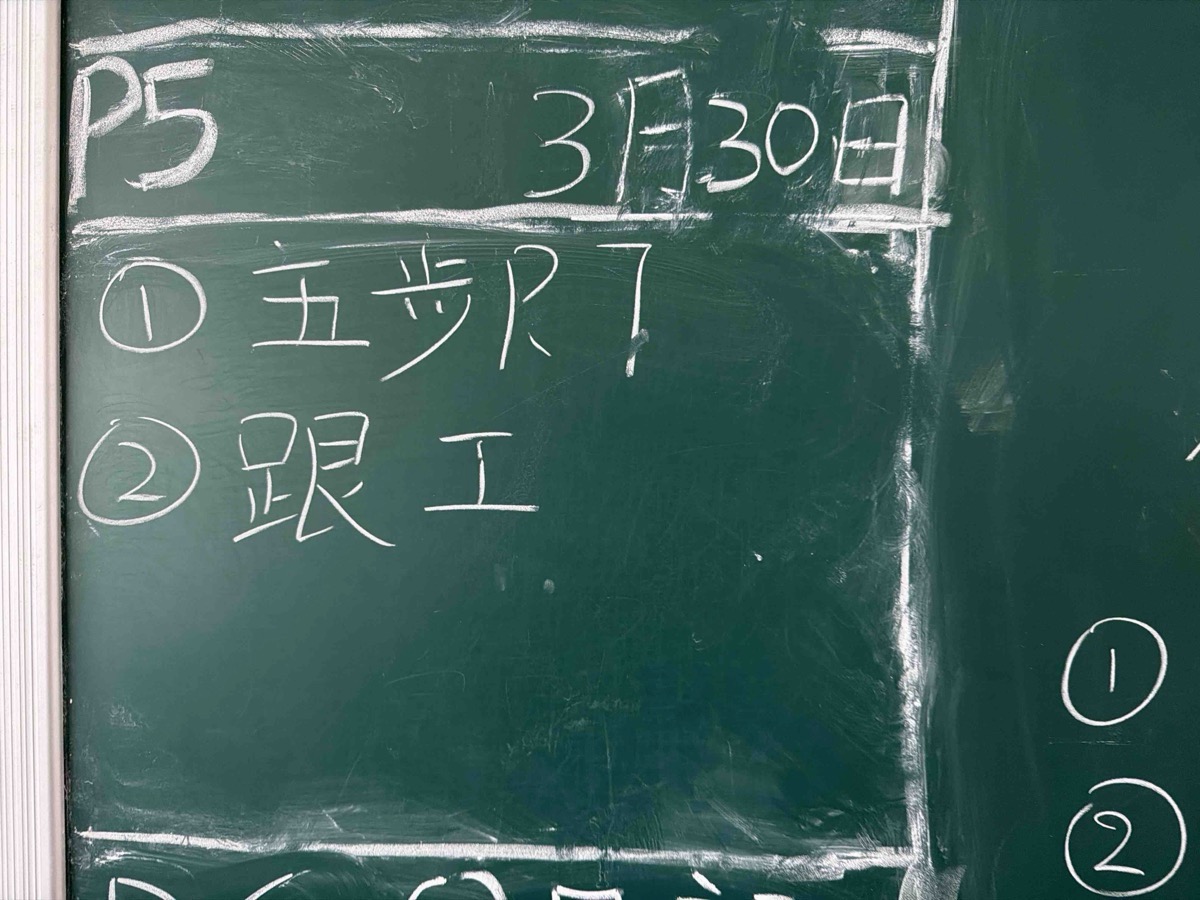 P5 3月30日
① 五步卩丁
② 跟工
①
②